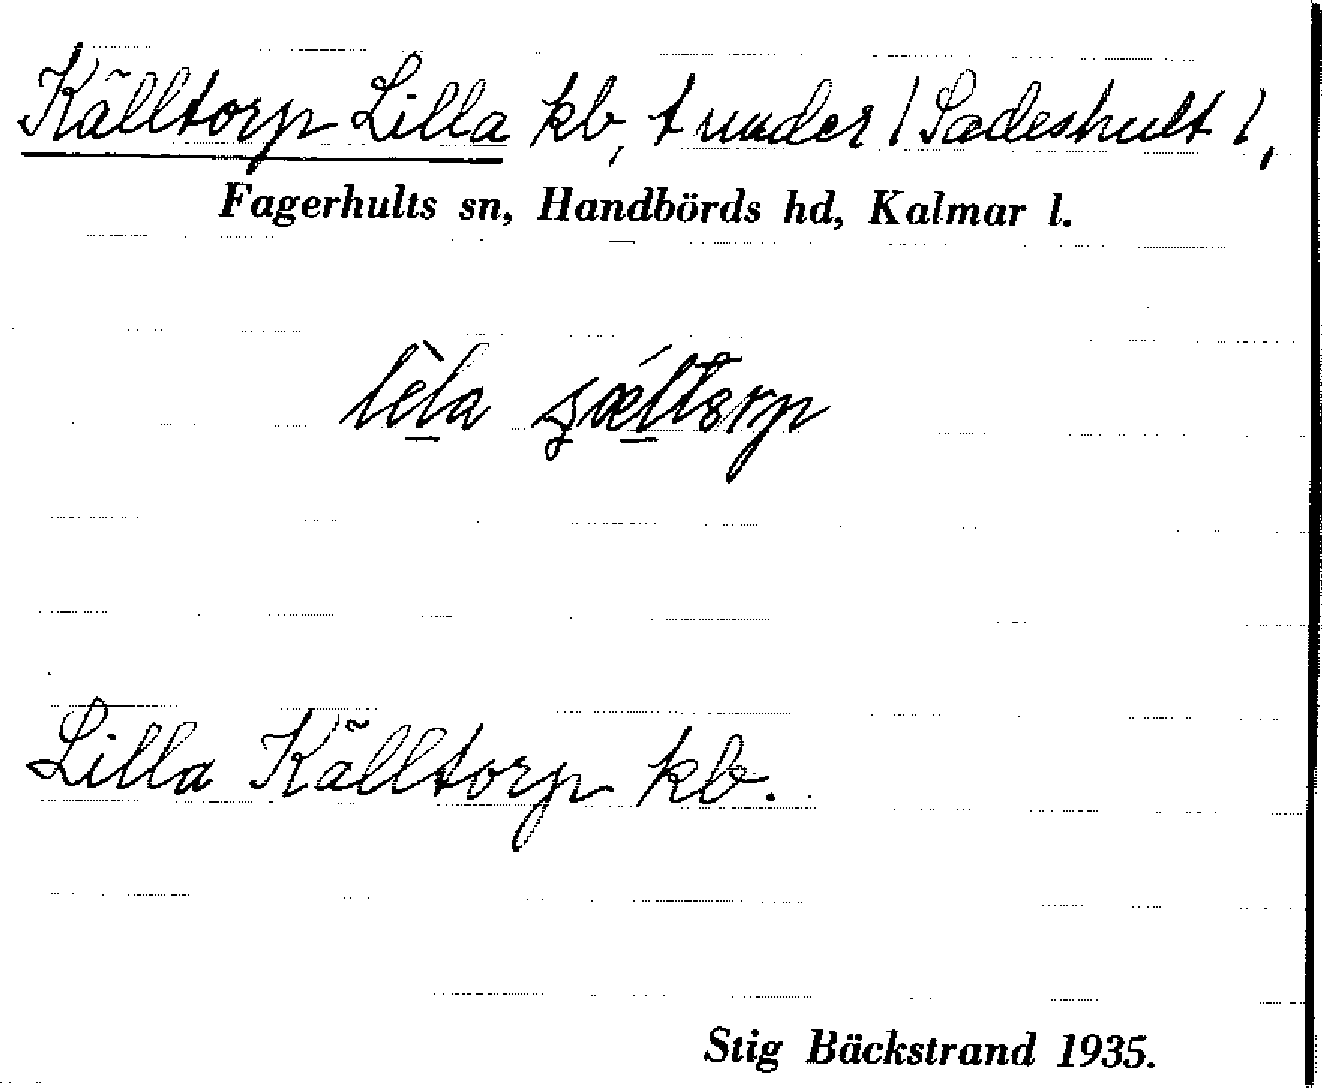 Källtorp Lilla kb, t under / Sadeshult /,
Fagerhults sn, Handbörds hd, Kalmar l.
lèla
Lilla Källtorp kb.
Stig Bäckstrand 1935.